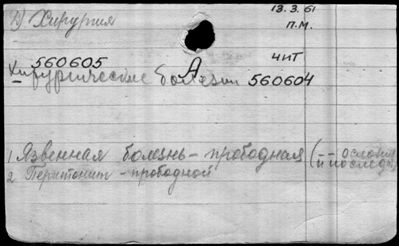 1) Хирургия 13.3.61
П.М.
560605 А ЧИТ
Хирургические болезни 560604
1 Язвенная болезнь - прободная (
2 Перитонит - прободной